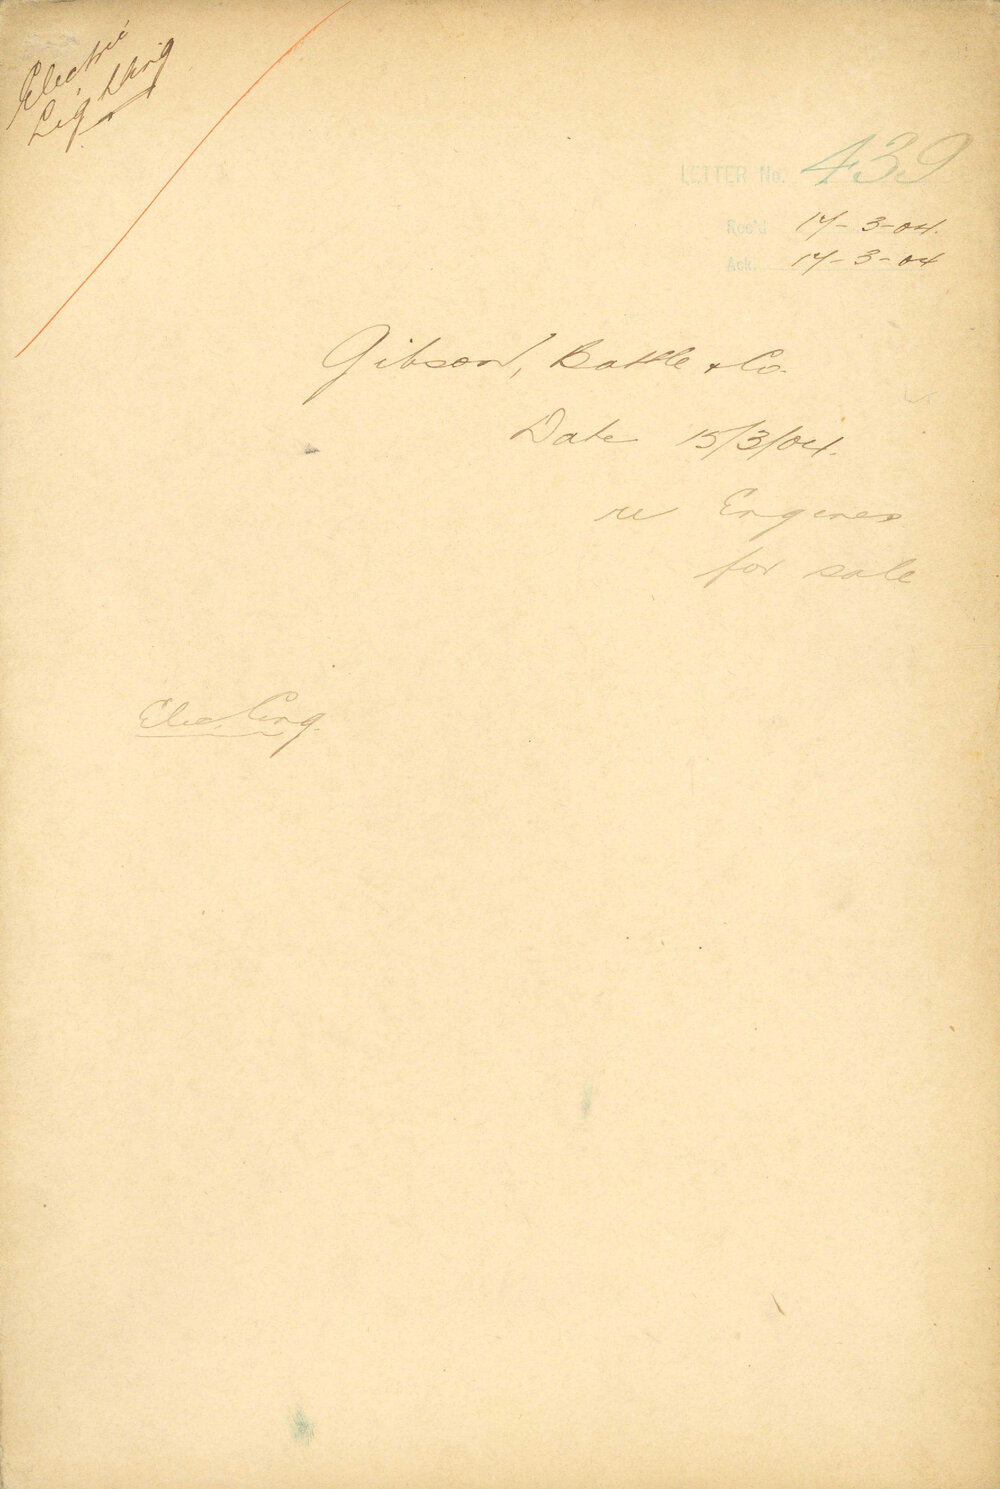 Electric
Lighting
LETTER No. 439
Rec'd 17-3-04.
Ack. 17-3-04
Gibson, Battle & Co.
Date 15/3/04.
re Engines
for sale
Elec. Eng.